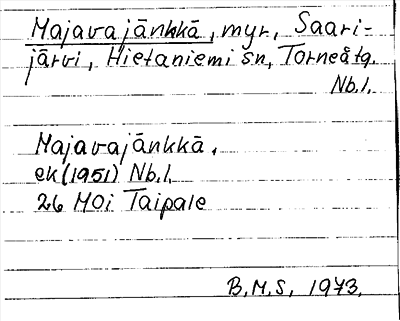 Majavajänkkä, myr, Saari-
järvi, Hietaniemi sn, Torneå tg.
Nb.l.
Majavajänkkä,
ek (1951) Nb.l.
26 MOi Taipale
B.M.S, 1973.